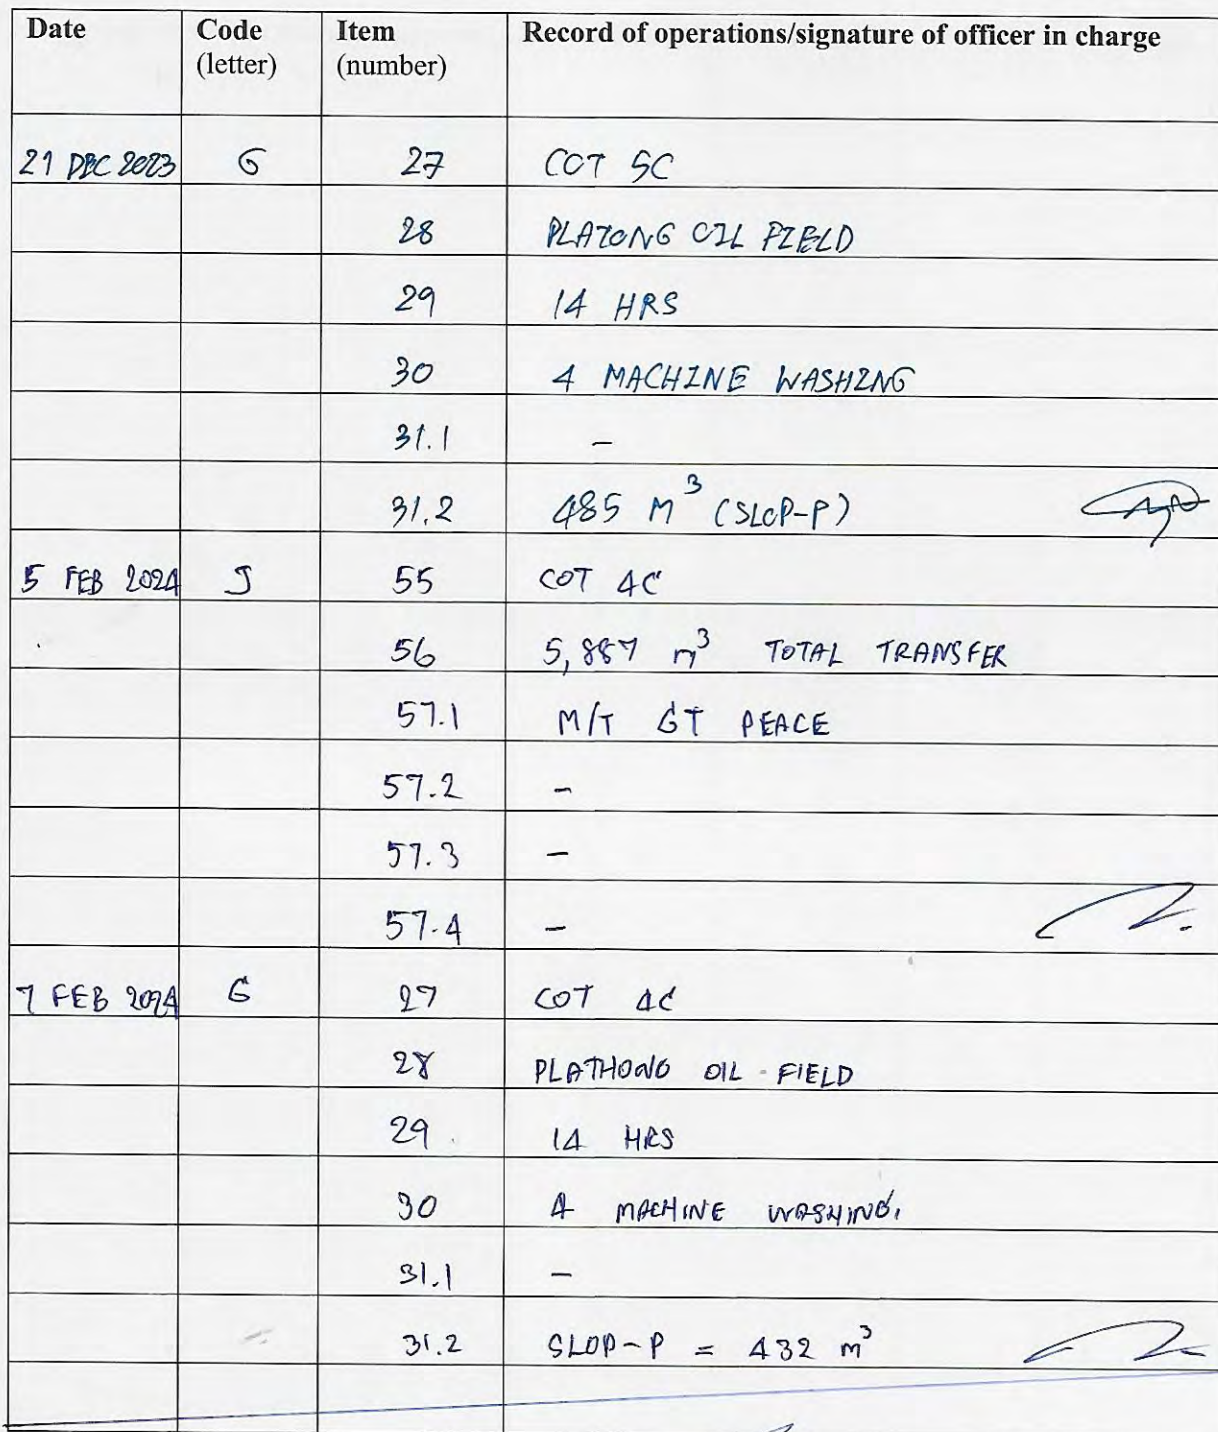 Date Code (letter) Item (number) Record of operations/signature of officer in charge
21 DEC 2023 G 27 COT 5C
28 PLATONG OIL FIELD
29 14 HRS
30 4 MACHINE WASHING
31.1 –
31.2 485 M³ (SLOP-P)
5 FEB 2024 J 55 COT 4C
56 5,887 m³ TOTAL TRANSFER
57.1 M/T GT PEACE
57.2 –
57.3 –
57.4 –
7 FEB 2024 G 27 COT 4C
28 PLATHONG OIL FIELD
29 14 HRS
30 4 MACHINE WASHING.
31.1 –
31.2 SLOP-P = 432 m³